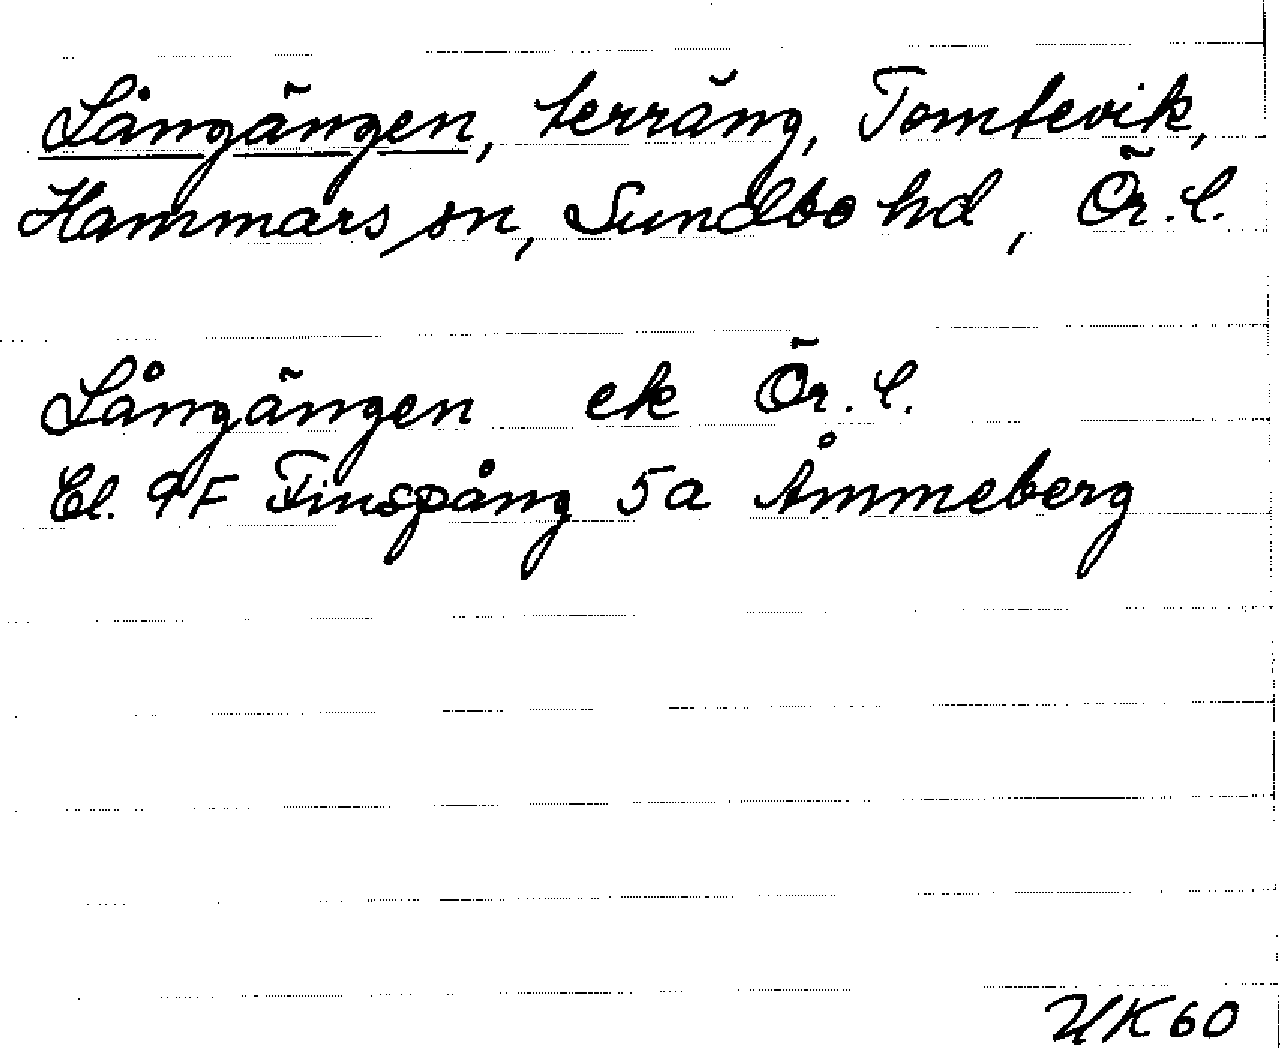 Långängen, terräng, Tomtevik,
Hammars sn, Sundbo hd, Ör. l.
Långängen ek Ör. l.
El. 9F Finspång 5a Åmmeberg
UK60